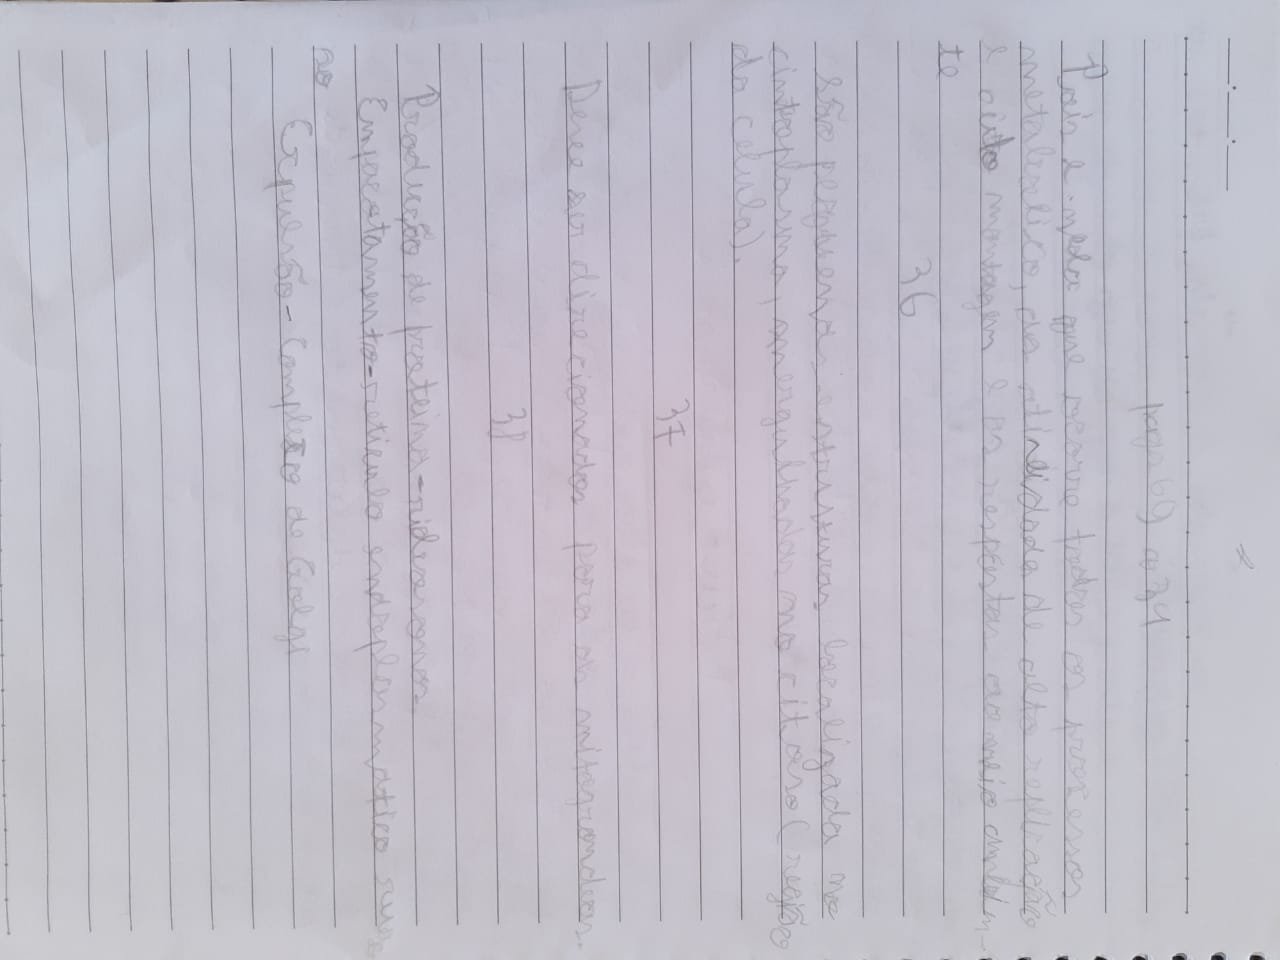 pag 69 a 74
Pois é nela que ocorre todos os processos
metabolico, da atividade de alto replicação
e auto montagem e as respostas ao meio ambien-
te
36
São pequenas estruturas localizada no
cintoplasma, mergulhadas no citoso (região
da celula).
37
Deve ser direcionados para as mitocrondeas.
38
Produção de proteina - ribossomos.
Empacotamento - reticulo endoplasmatico rugo
so
Expulsão - Complexo de Golgi